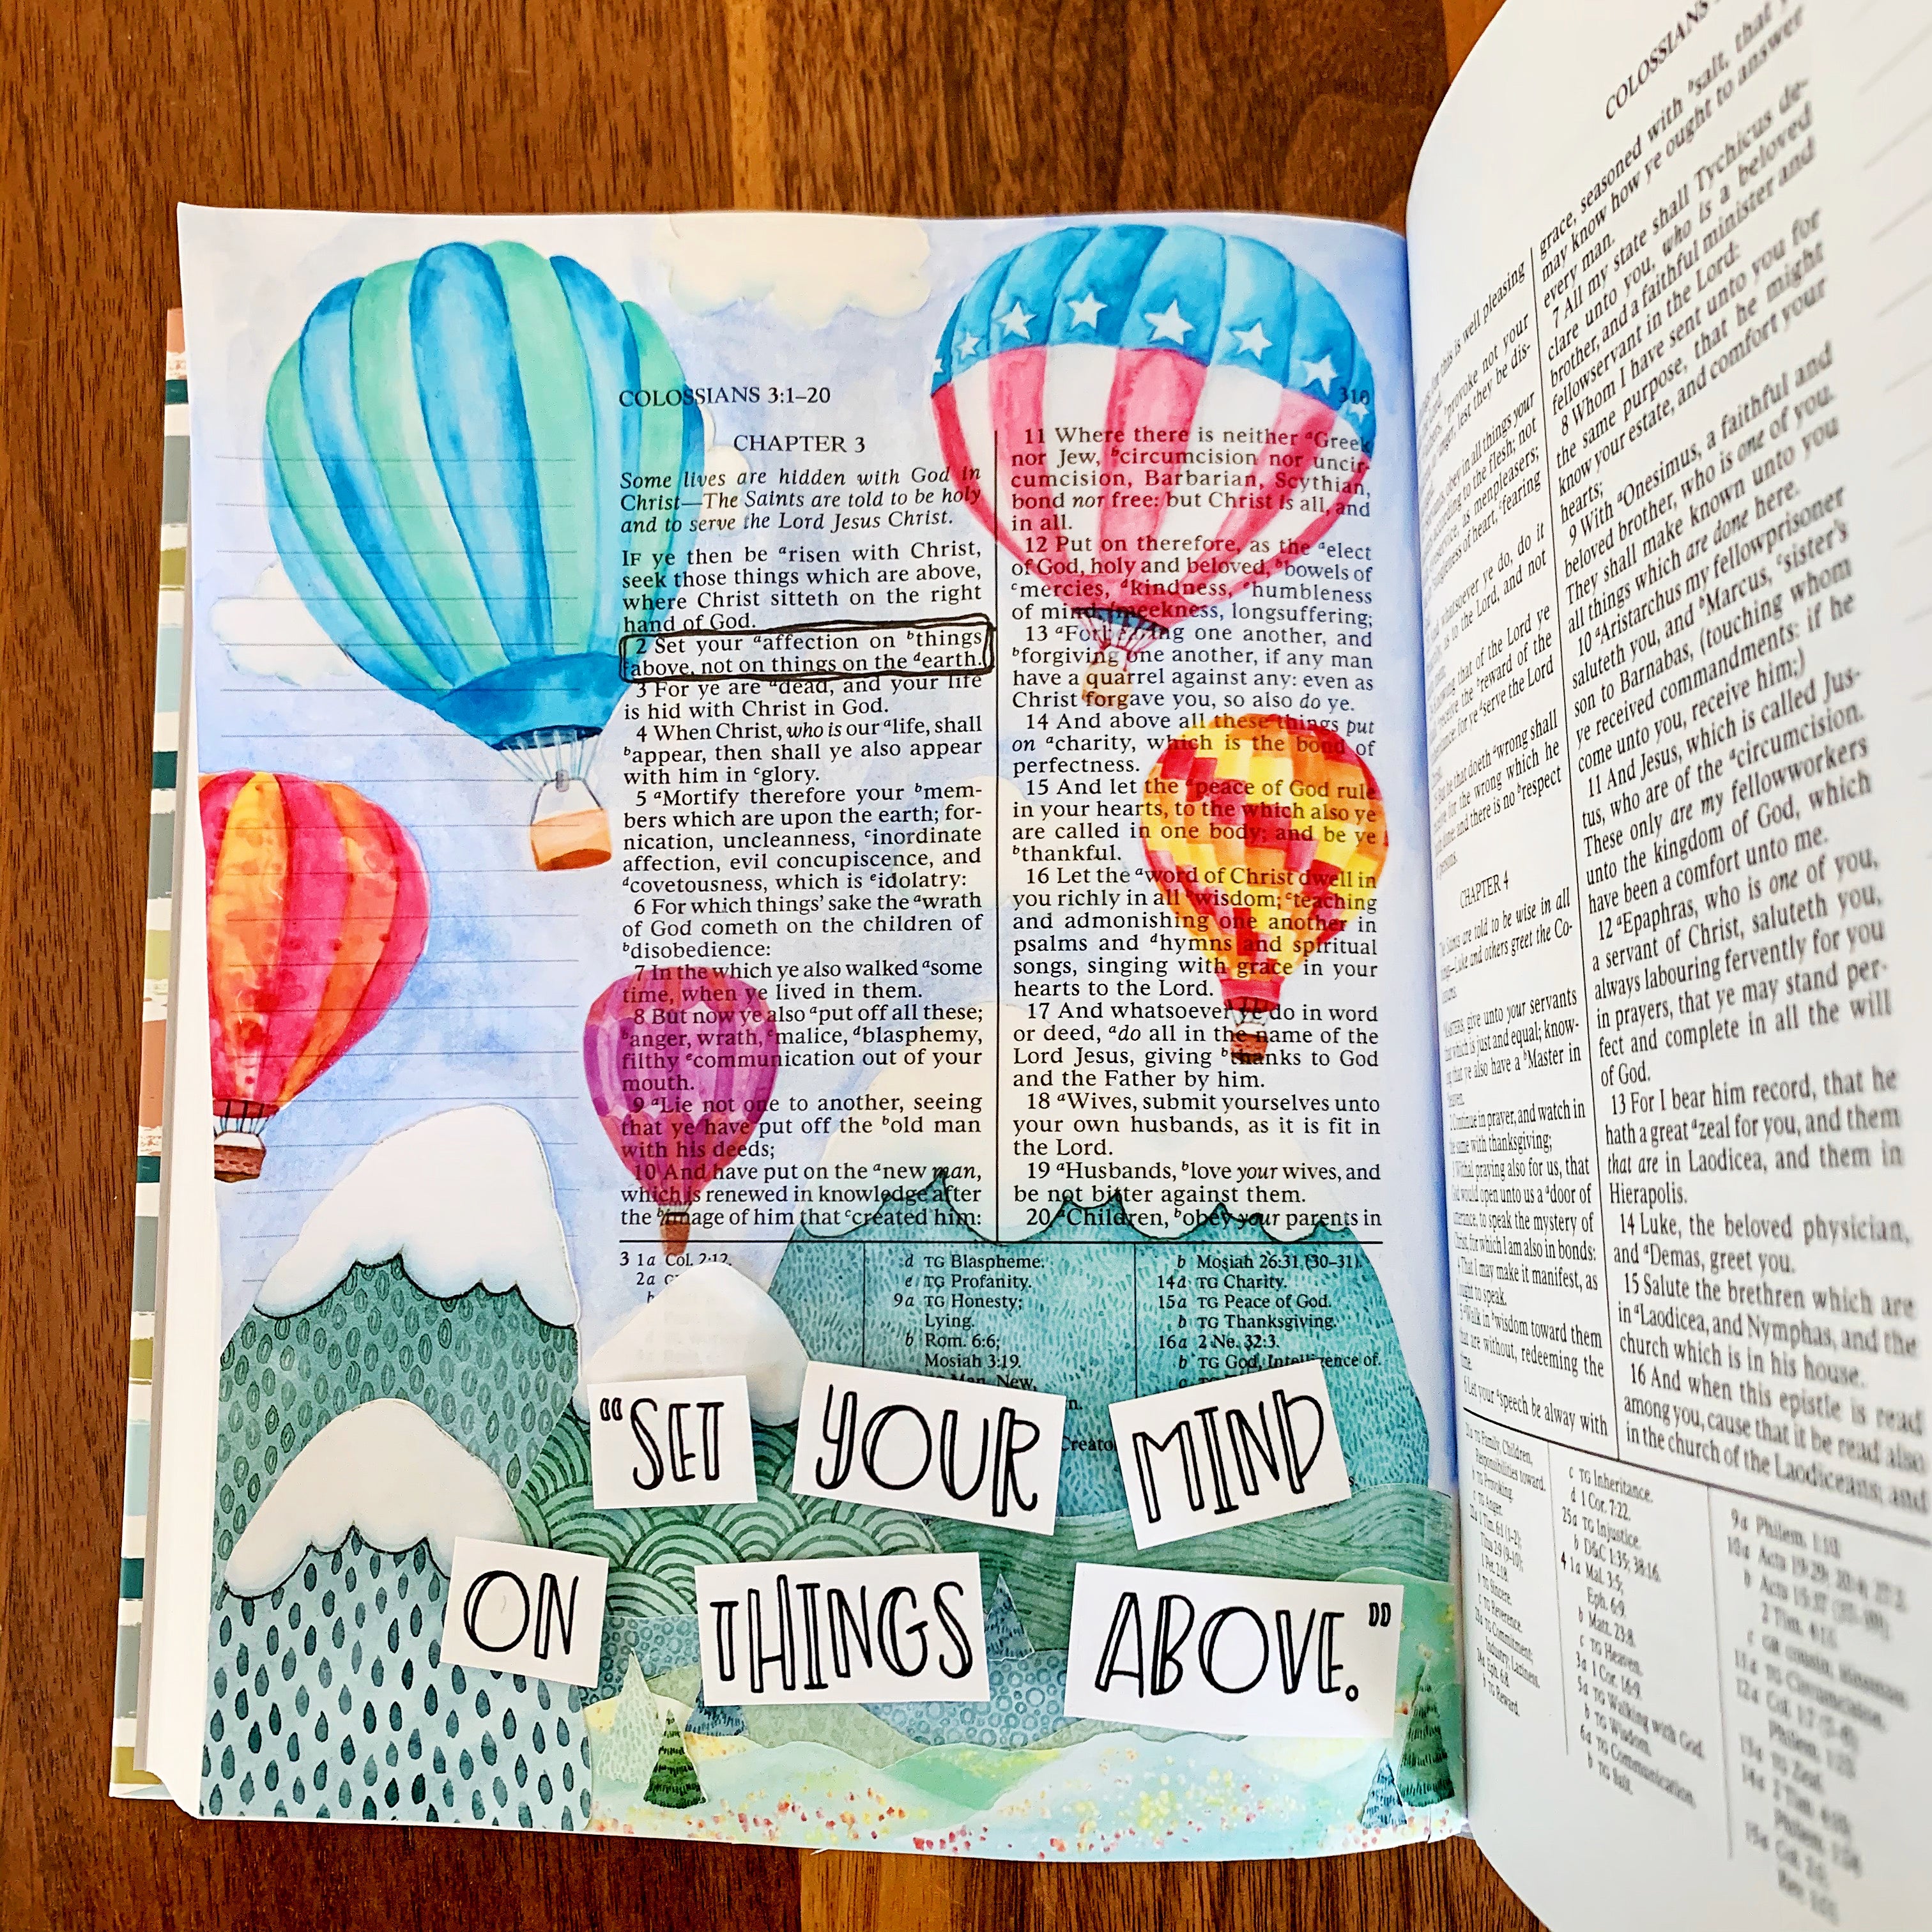 COLOSSIANS 3:1–20
310
CHAPTER 3
Some lives are hidden with God in
Christ—The Saints are told to be holy
and to serve the Lord Jesus Christ.
IF ye then be ᵃrisen with Christ,
seek those things which are above,
where Christ sitteth on the right
hand of God.
2 Set your ᵃaffection on ᵇthings
above, not on things on the ᵈearth.
3 For ye are ᵃdead, and your life
is hid with Christ in God.
4 When Christ, who is our ᵃlife, shall
ᵇappear, then shall ye also appear
with him in ᶜglory.
5 ᵃMortify therefore your ᵇmem-
bers which are upon the earth; for-
nication, uncleanness, ᶜinordinate
affection, evil concupiscence, and
ᵈcovetousness, which is ᵉidolatry:
6 For which things' sake the ᵃwrath
of God cometh on the children of
ᵇdisobedience:
7 In the which ye also walked ᵃsome
time, when ye lived in them.
8 But now ye also ᵃput off all these;
ᵇanger, wrath, ᶜmalice, ᵈblasphemy,
filthy ᵉcommunication out of your
mouth.
9 ᵃLie not one to another, seeing
that ye have put off the ᵇold man
with his deeds;
10 And have put on the ᵃnew man,
which is renewed in knowledge after
the ᵇimage of him that ᶜcreated him:
11 Where there is neither ᵃGreek
nor Jew, ᵇcircumcision nor uncir-
cumcision, Barbarian, Scythian,
bond nor free: but Christ is all, and
in all.
12 Put on therefore, as the ᵃelect
of God, holy and beloved, ᵇbowels of
ᶜmercies, ᵈkindness, ᵉhumbleness
of mind, ᶠmeekness, longsuffering;
13 ᵃForbearing one another, and
ᵇforgiving one another, if any man
have a quarrel against any: even as
Christ forgave you, so also do ye.
14 And above all these things put
on ᵃcharity, which is the bond of
perfectness.
15 And let the ᵃpeace of God rule
in your hearts, to the which also ye
are called in one body; and be ye
ᵇthankful.
16 Let the ᵃword of Christ dwell in
you richly in all ᵇwisdom; ᶜteaching
and admonishing one another in
psalms and ᵈhymns and spiritual
songs, singing with grace in your
hearts to the Lord.
17 And whatsoever ye do in word
or deed, ᵃdo all in the name of the
Lord Jesus, giving ᵇthanks to God
and the Father by him.
18 ᵃWives, submit yourselves unto
your own husbands, as it is fit in
the Lord.
19 ᵃHusbands, ᵇlove your wives, and
be not bitter against them.
20 ᵃChildren, ᵇobey your parents in
3 1a Col. 2:12.
2a
d TG Blaspheme.
e TG Profanity.
9a TG Honesty;
Lying.
b Rom. 6:6;
Mosiah 3:19.
Man, New,
b Mosiah 26:31 (30–31).
14a TG Charity.
15a TG Peace of God.
b TG Thanksgiving.
16a 2 Ne. 32:3.
b TG God, Intelligence of.
"SET YOUR MIND
ON THINGS ABOVE."
COLOSSIANS
for this is well pleasing
ᵃprovoke not your
lest they be dis-
in all things your
to the flesh; not
as menpleasers;
of heart, ᶠfearing
whatsoever ye do, do it
to the Lord, and not
that of the Lord ye
receive the ᵃreward of the
for ye ᵇserve the Lord
that doeth ᵃwrong shall
for the wrong which he
and there is no ᵇrespect
CHAPTER 4
are told to be wise in all
Luke and others greet the Co-
give unto your servants
which is just and equal; know-
that ye also have a ᵇMaster in
Continue in prayer, and watch in
same with thanksgiving;
praying also for us, that
would open unto us a ᵃdoor of
to speak the mystery of
Christ, for which I am also in bonds:
4 That I may make it manifest, as
ought to speak.
5 ᵃWalk in ᵇwisdom toward them
that are without, redeeming the
time.
6 Let your ᵃspeech be alway with
grace, seasoned with ᵇsalt, that
may know how ye ought to answer
every man.
7 All my state shall Tychicus de-
clare unto you, who is a beloved
brother, and a faithful minister and
fellowservant in the Lord:
8 Whom I have sent unto you for
the same purpose, that he might
know your estate, and comfort your
hearts;
9 With ᵃOnesimus, a faithful and
beloved brother, who is one of you.
They shall make known unto you
all things which are done here.
10 ᵃAristarchus my fellowprisoner
saluteth you, and ᵇMarcus, ᶜsister's
son to Barnabas, (touching whom
ye received commandments: if he
come unto you, receive him;)
11 And Jesus, which is called Jus-
tus, who are of the ᵃcircumcision.
These only are my fellowworkers
unto the kingdom of God, which
have been a comfort unto me.
12 ᵃEpaphras, who is one of you,
a servant of Christ, saluteth you,
always labouring fervently for you
in prayers, that ye may stand per-
fect and complete in all the will
of God.
13 For I bear him record, that he
hath a great ᵃzeal for you, and them
that are in Laodicea, and them in
Hierapolis.
14 Luke, the beloved physician,
and ᵃDemas, greet you.
15 Salute the brethren which are
in ᵃLaodicea, and Nymphas, and the
church which is in his house.
16 And when this epistle is read
among you, cause that it be read also
in the church of the Laodiceans; and
TG Family, Children,
Responsibilities toward.
c TG Inheritance.
d 1 Cor. 7:22.
25a TG Injustice.
b D&C 1:35; 38:16.
4 1a Mal. 3:5;
Eph. 6:9.
b Matt. 23:8.
c TG Heaven.
3a 1 Cor. 16:9.
5a TG Walking with God.
b TG Wisdom.
6a TG Communication.
b TG Salt.
9a Philem. 1:10.